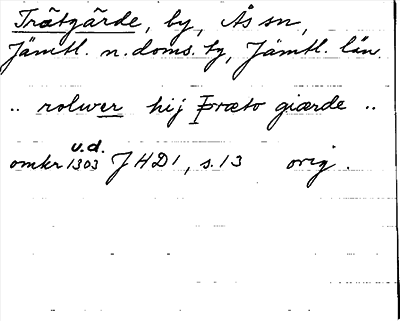 Trätgärde, by, Ås sn,
Jämtl. n. doms. tg, Jämtl. län.
.. rolwer hij þræto giærde ..
u.d.
omkr 1303 JHD1, s. 13 orig.